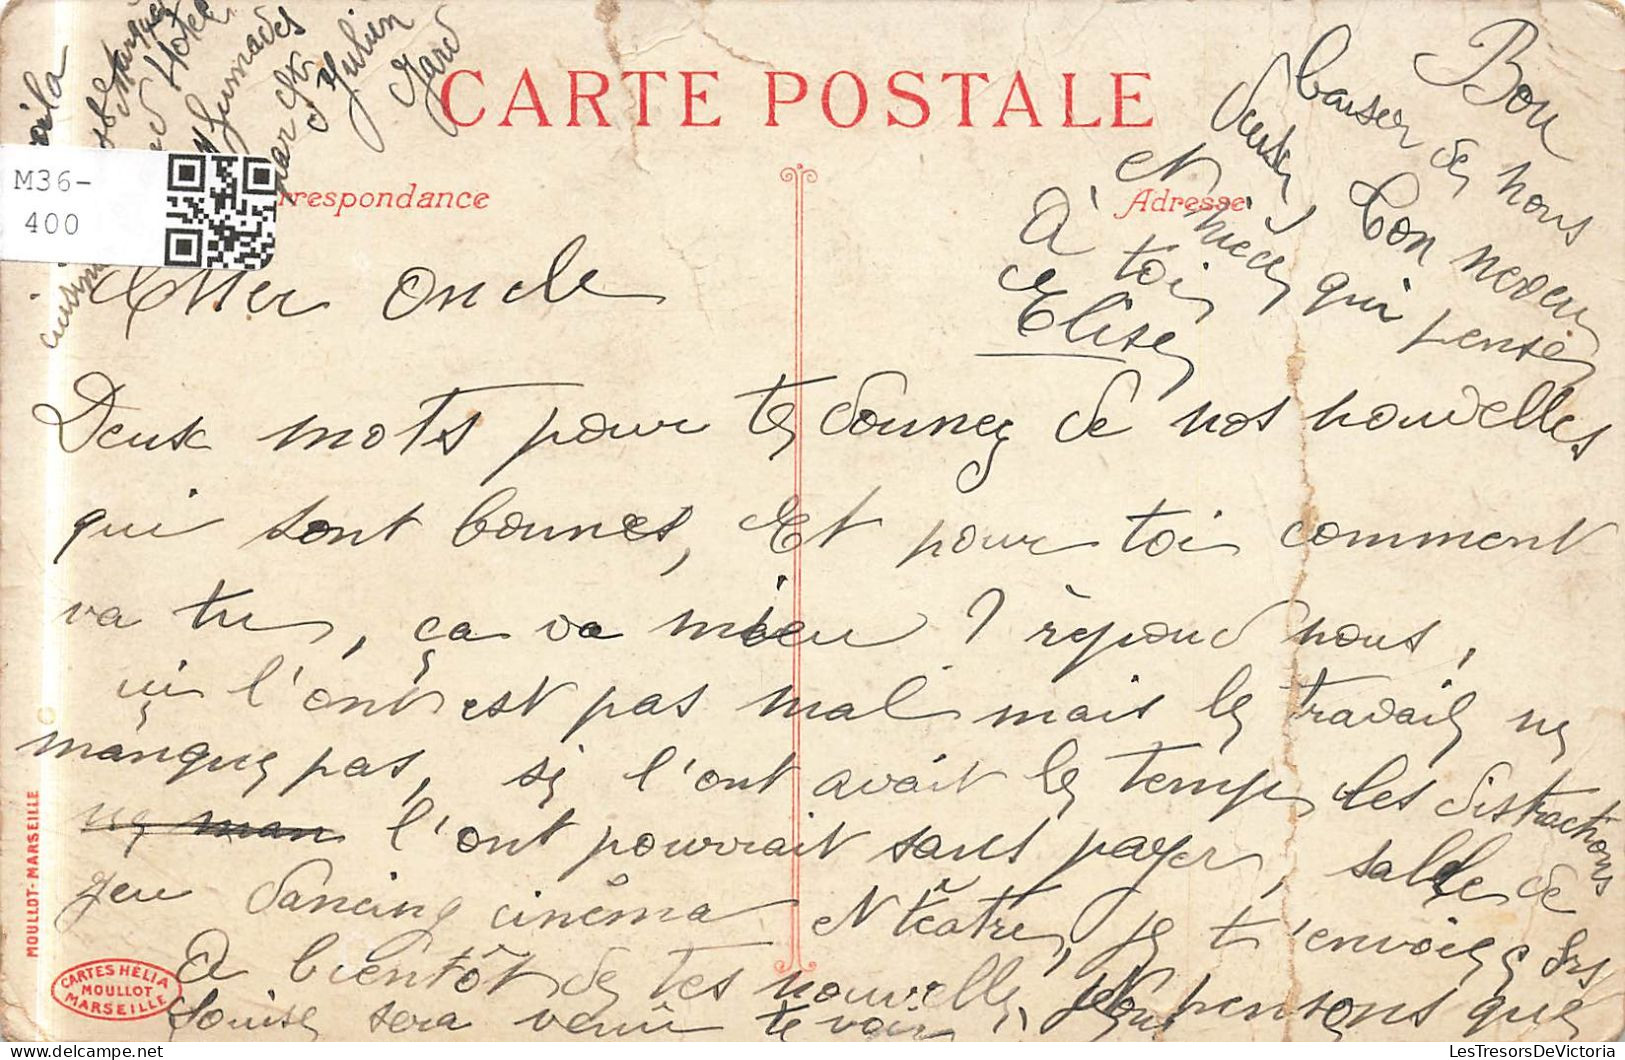 CARTE POSTALE
M36-
400
rrespondance
Adresse
Cher oncle
Deux mots pour te donner de nos nouvelles
qui sont bonnes, Et pour toi comment
va tu, ça va mieu ? répond nous,
içi l'ont est pas mal mais le travail ne
manque pas, si l'ont avait le temps les distractions
ne man l'ont pourrait sans payer, salle de
jeu dancing cinéma et téatre, je t'envoie ç
A bientôt de tes nouvelle, Nous pensons que
Louise sera venu te voir
Bon
baiser de nous
deux ton neveu
et nièce qui pense
à toi
Elise
voila
Hotel
Fumades
par St
Julien
Gard
MOULLOT-MARSEILLE
CARTES HÉLIA
MOULLOT
MARSEILLE
LesTresorsDeVictoria